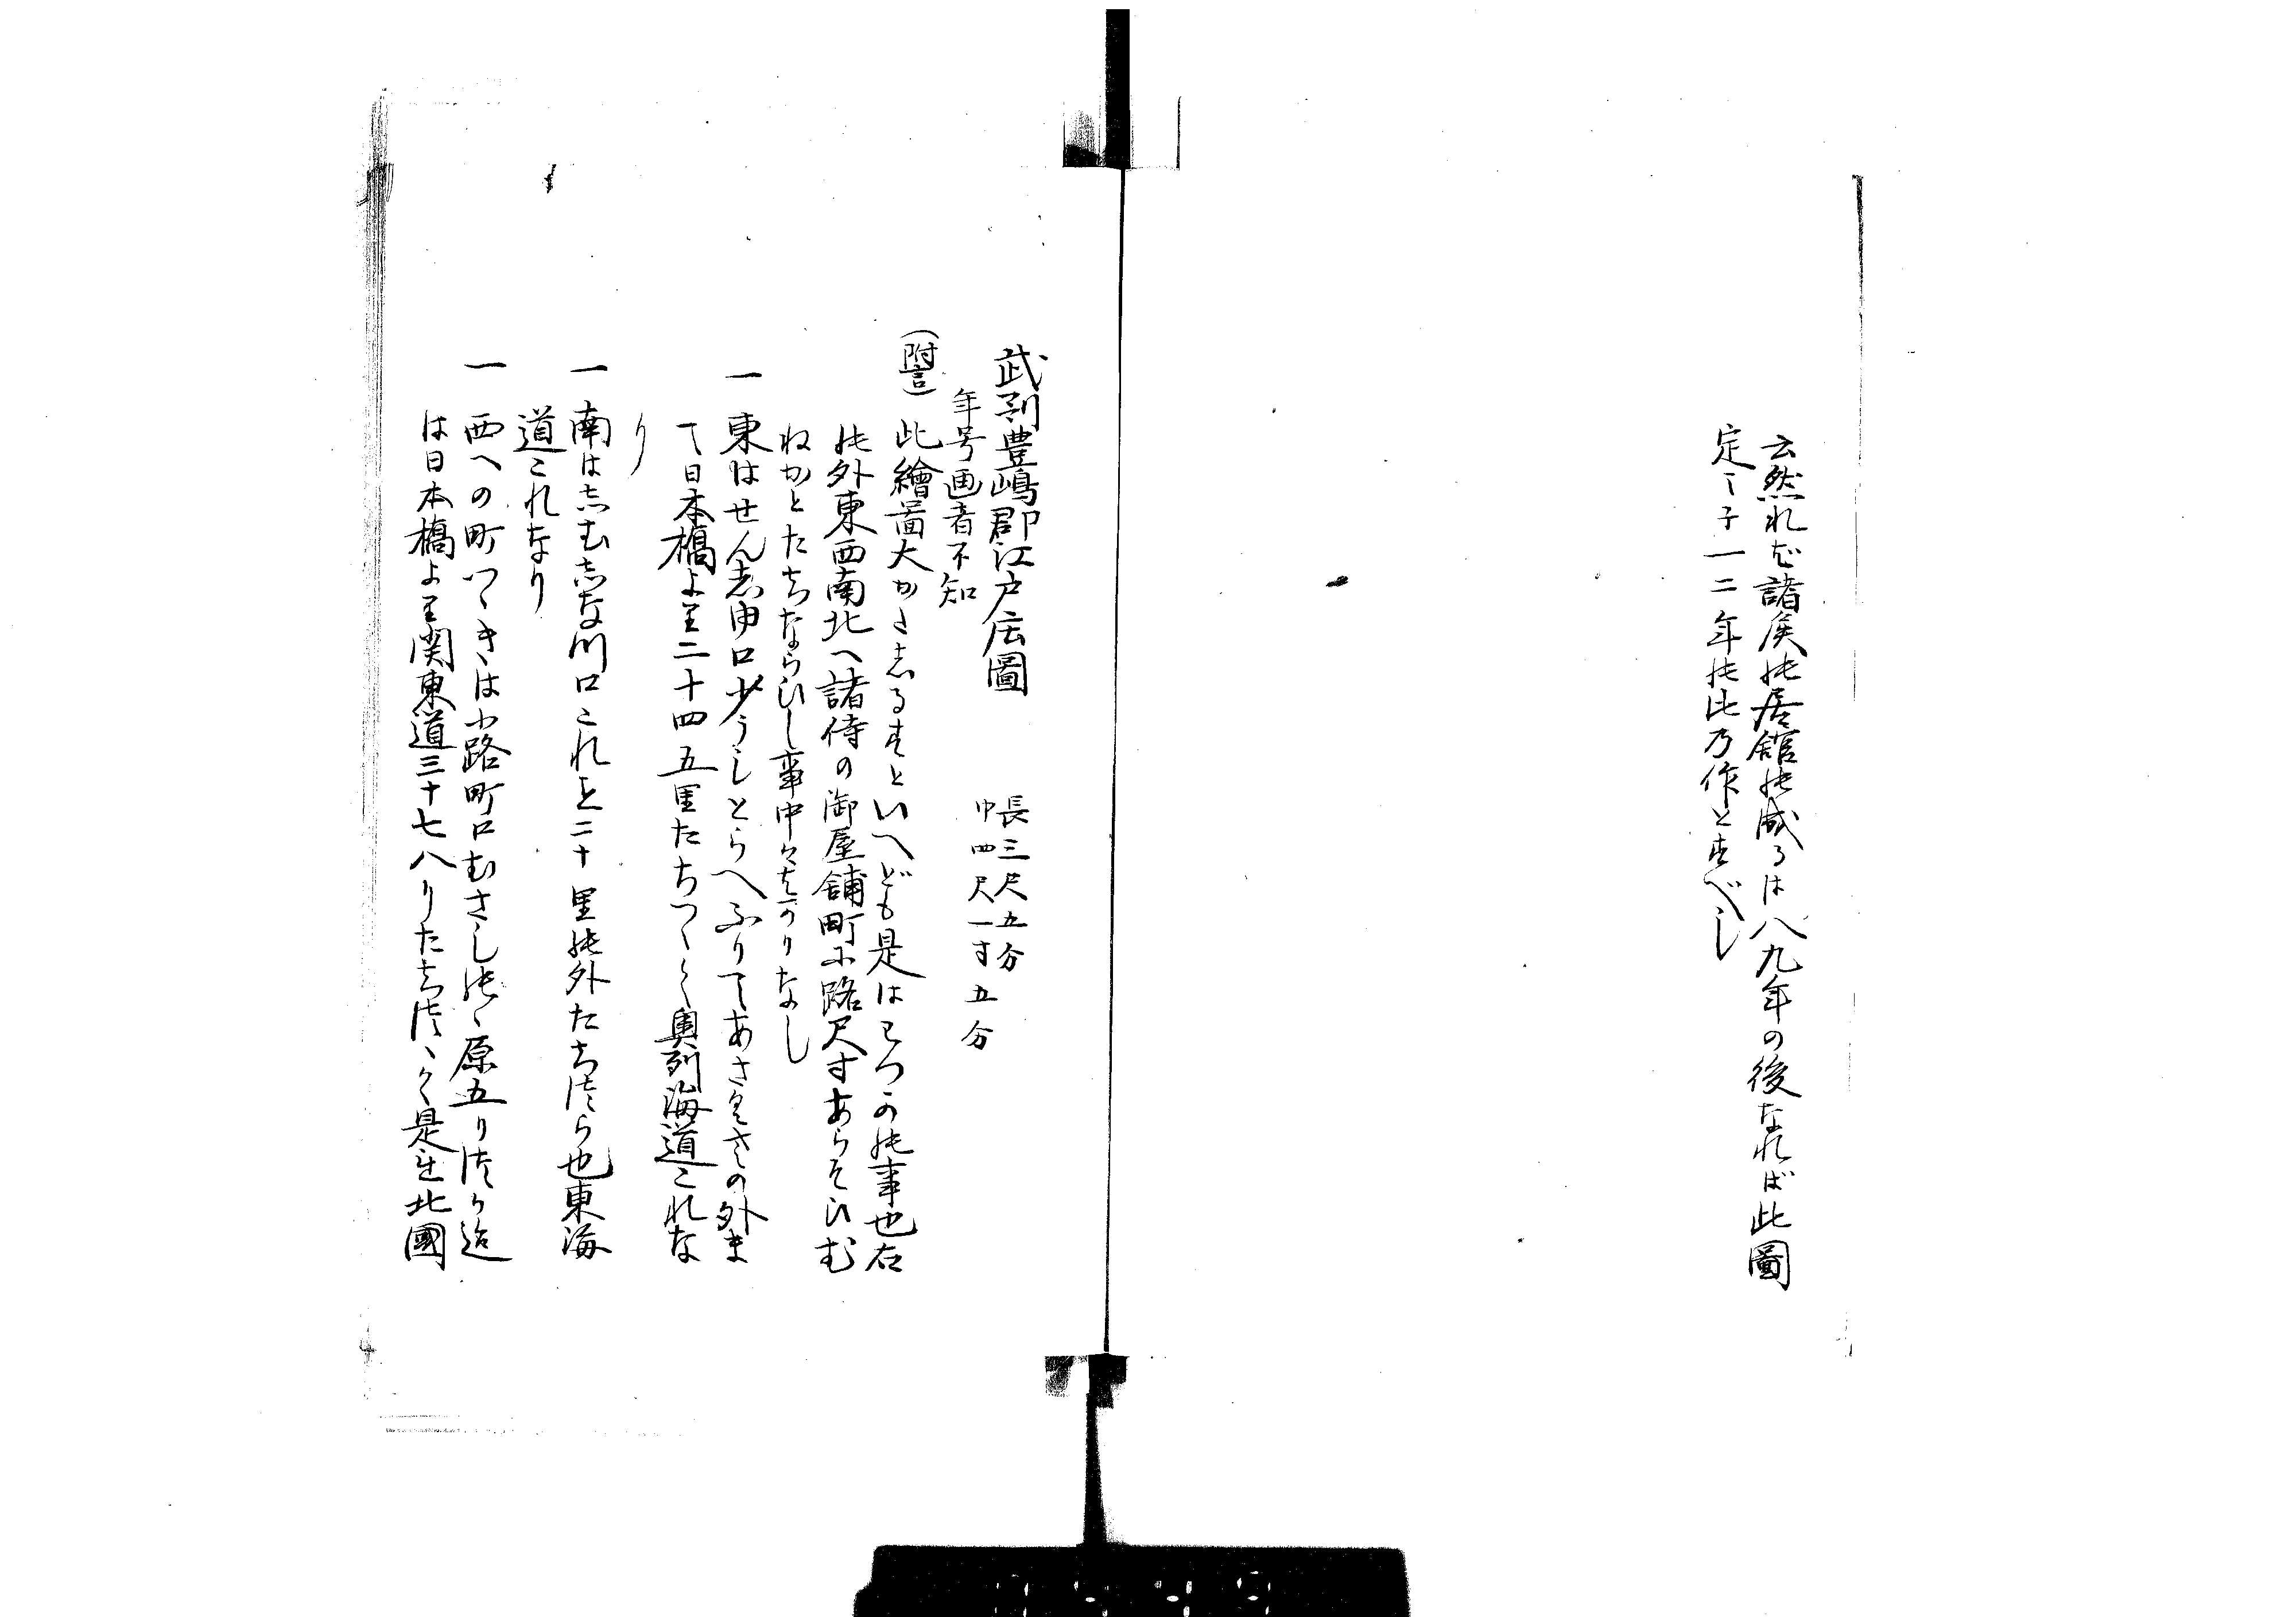 云然れど諸侯の居館の威るは八九年の後なれば此圖
定て子一二年の比乃作とすべし
武刕豊嶋郡江戸庄圖 長三尺五分
年号画者不知 巾四尺一寸五分
(附言) 此繪啚大かたしるすといへども是はわつかの事也右
の外東西南北へ諸侍の御屋舗町小路尺寸あらそひむ
ねかとたちならひし事中々其かりなし
一 東はせんしゆ口少うしとらへふりてあさくさの外ま
て日本橋より二十四五里たちつゝく奥列海道これな
り
一 南はしむしな川口これも二十里の外たちつゝら也東海
道これなり
一 西への町つゝきは小路町口むさしのゝ原五りつゝか迠
は日本橋より関東道三十七八りたちつゝく是を北國